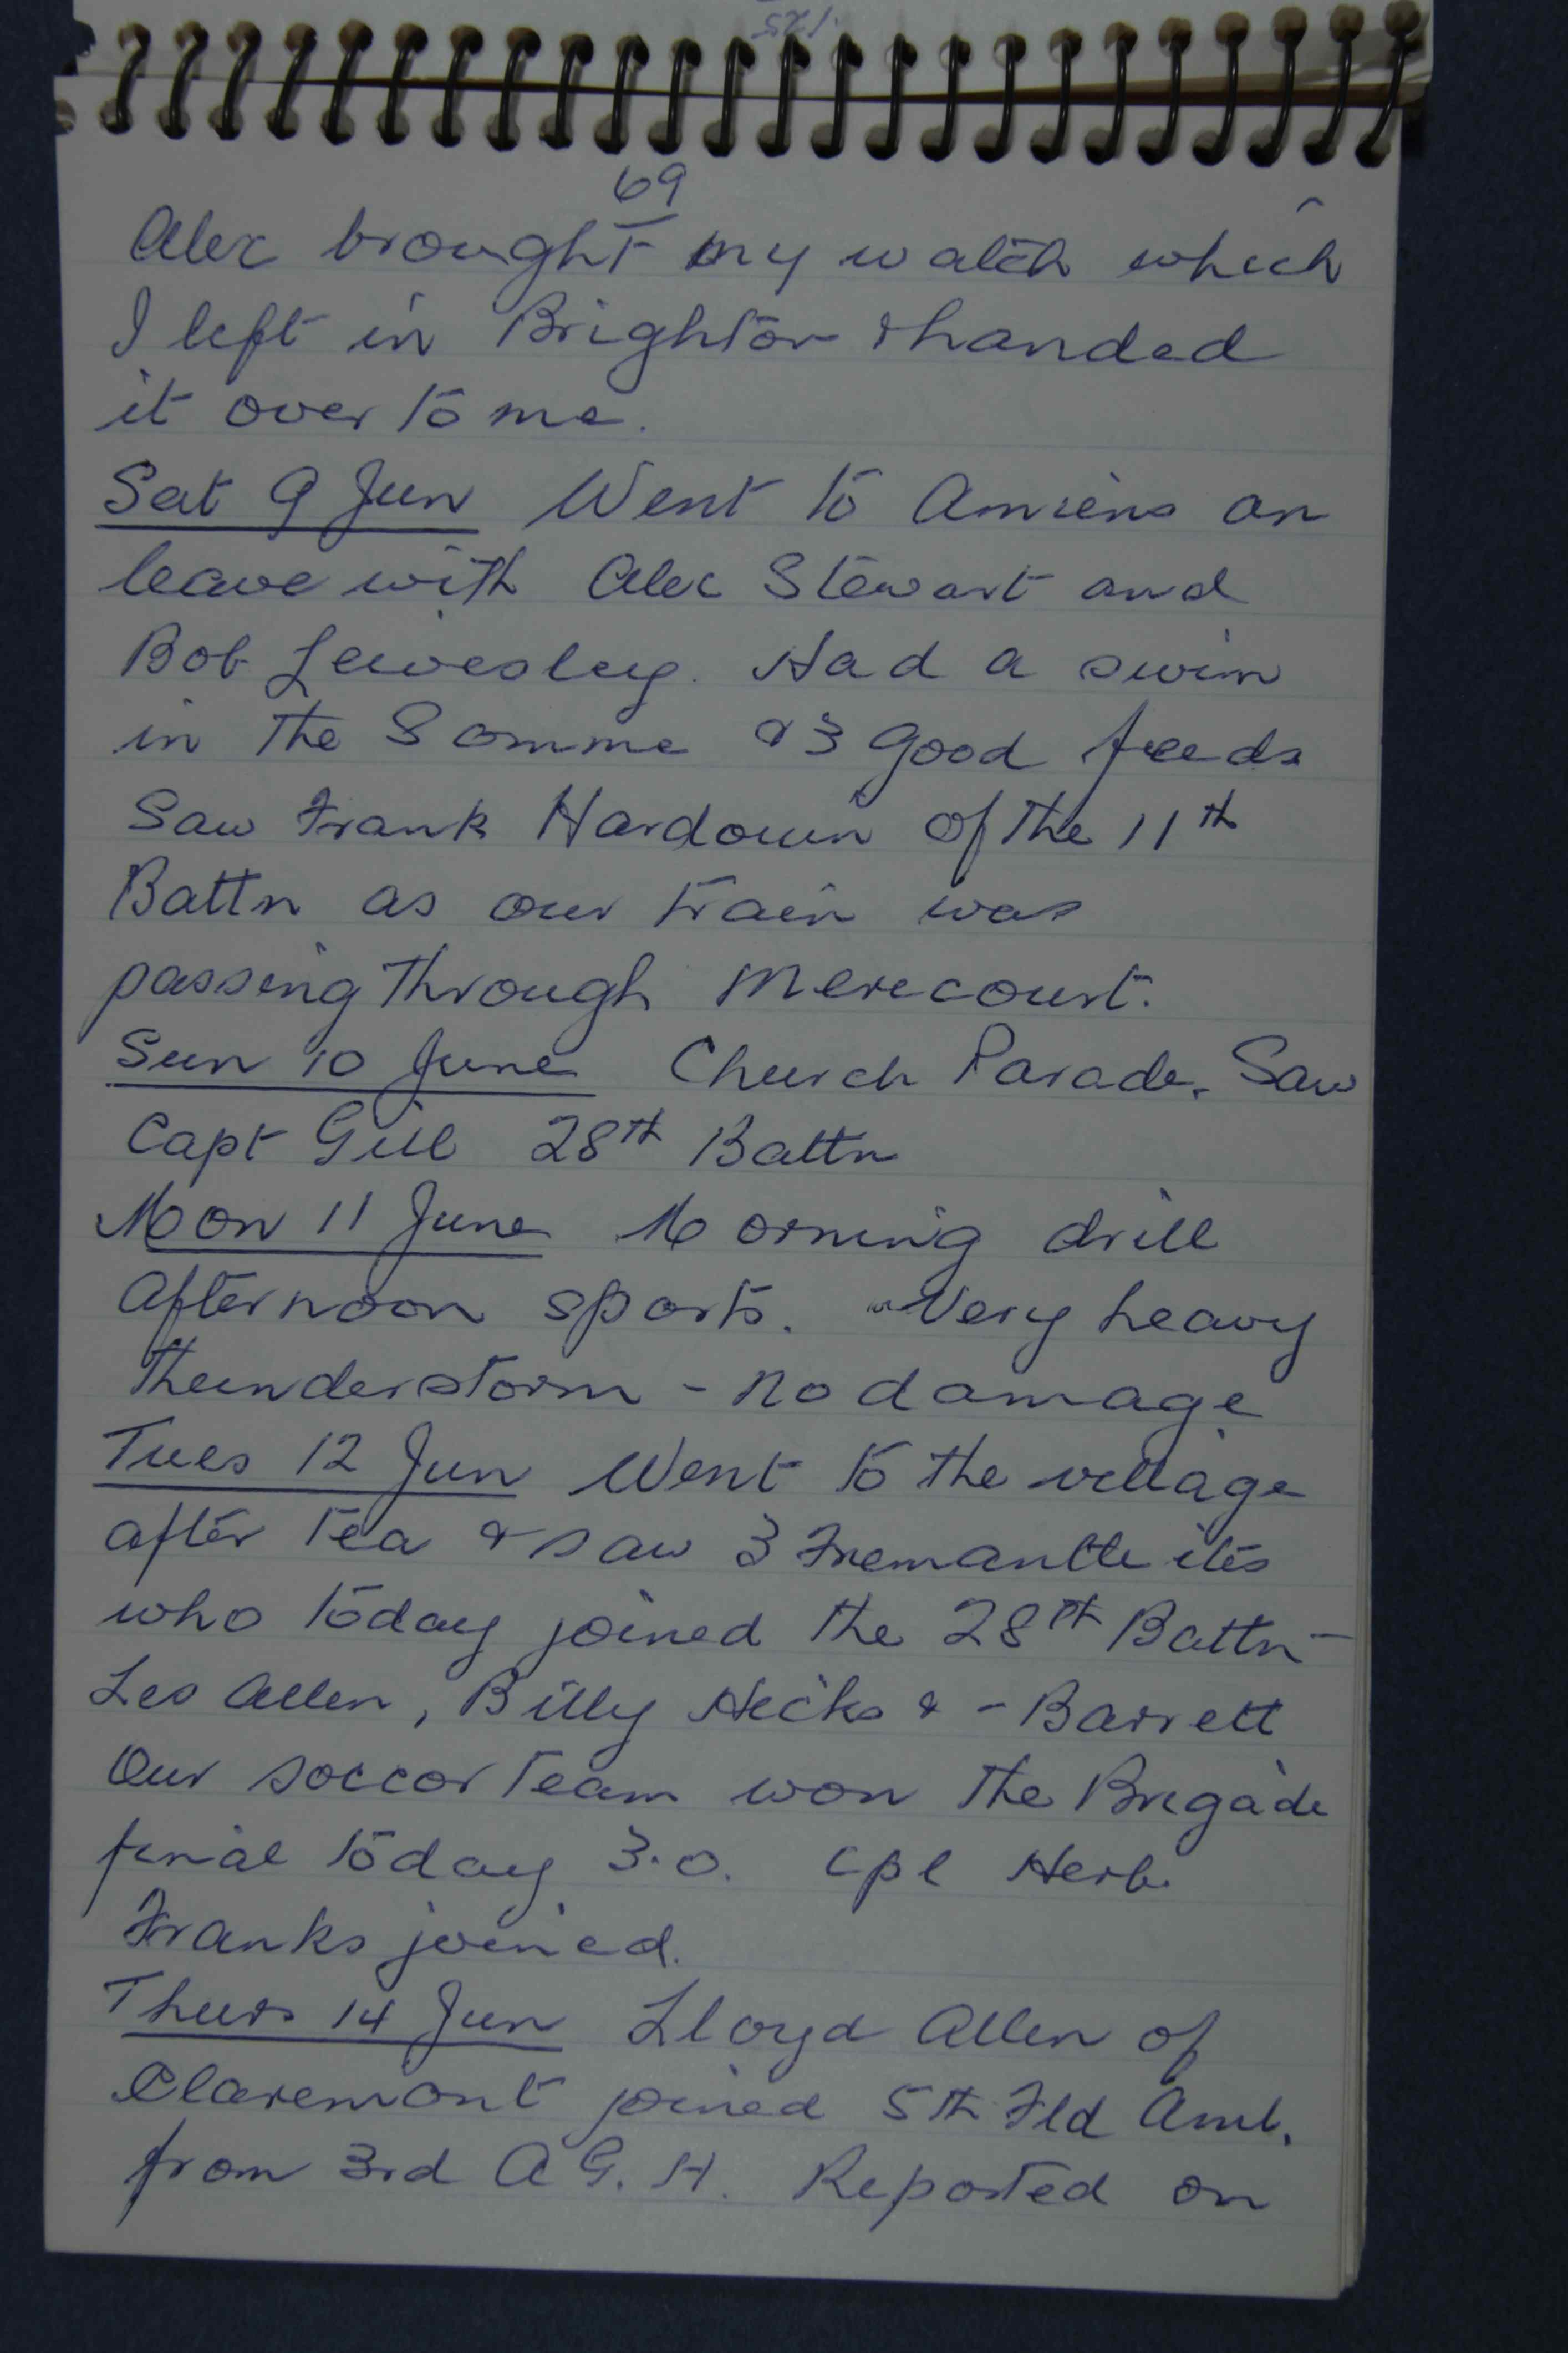 69
Alec brought my watch which
I left in Brighton & handed
it over to me.
Sat 9 Jun Went to Amiens on
leave with Alec Stewart and
Bob Leivesley. Had a swim
in the Somme & 3 good feeds
Saw Frank Hardouin of the 11th
Battn as our train was
passing through Merecourt.
Sun 10 June Church Parade. Saw
Capt Gill 28th Battn
Mon 11 June Morning drill
Afternoon sports. Very heavy
Thunderstorm - no damage
Tues 12 Jun Went to the village
after tea & saw 3 Fremantleites
who today joined the 28th Battn -
Les Allen, Billy Hicks & - Barrett
Our soccor team won the Brigade
final today 3.0. Cpl Herb.
Franks joined.
Thurs 14 Jun Lloyd Allen of
Claremont joined 5th Fld Amb.
from 3rd A G. H. Reported on